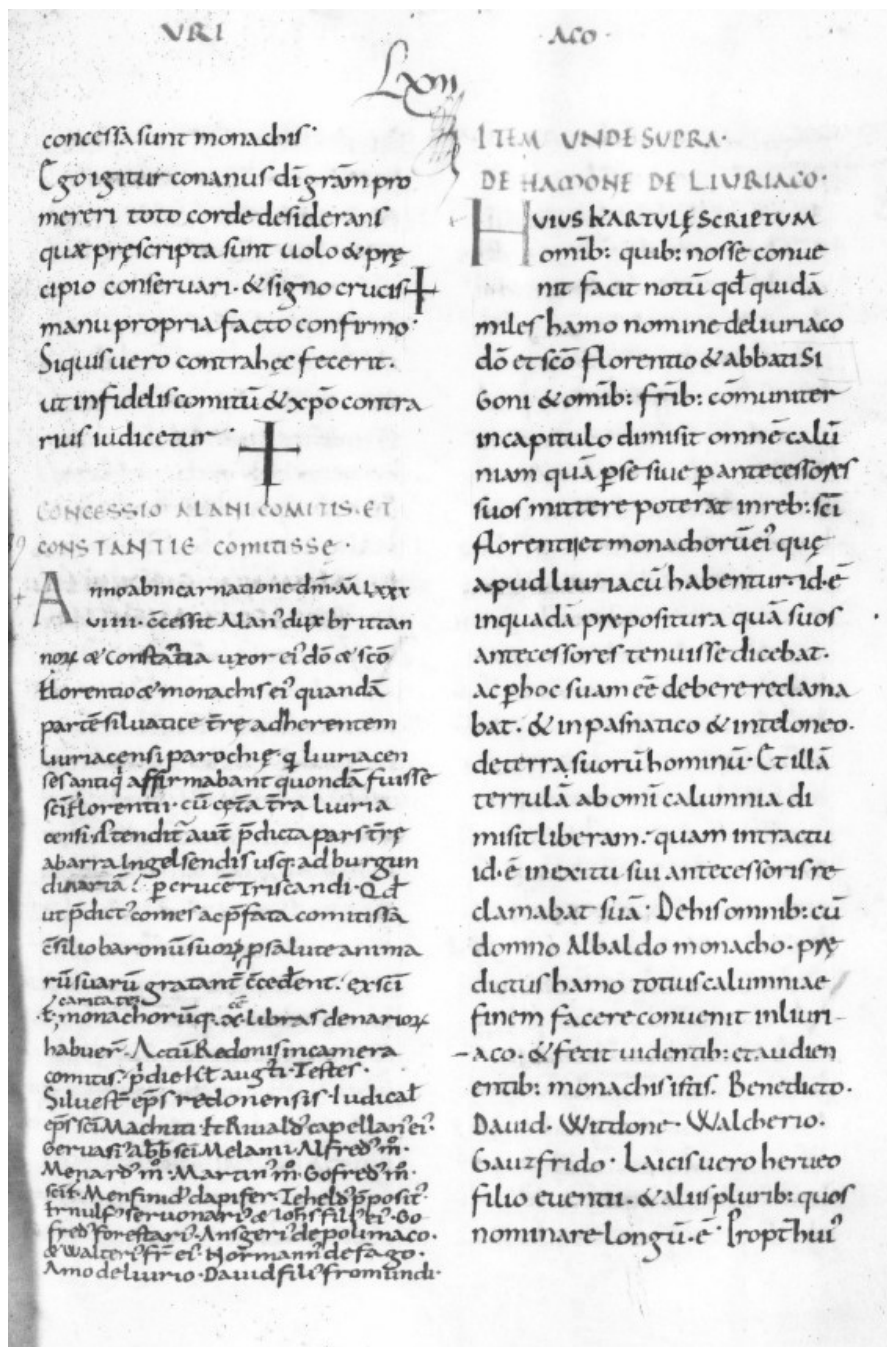 VRI ACO
Lxvii
concessa sunt monachis
Ego igitur conanus dī grām pro
mereri toto corde desiderans
quæ pręscripta sunt uolo & pre
cipio conseruari · & signo crucis
manu propria facto confirmo
Siquis uero contra hęc fecerit ·
ut infidelis comitū & xp̄o contra
rius iudicetur
CONCESSIO ALANI COMITIS · ET
CONSTANTIE comitisse ·
Anno ab incarnatione dm̄ · M̄ Lxxx
viiii · c̄cessit Alanꝰ dux brittan
noꝝ & Constātia uxor eiꝰ dō & sc̄o
florentio & monachis eiꝰ quandā
partē siluatice t̄rę adherentem
Liuriacensi parochię · q̄ liuriacen
ses antiqi affirmabant quondā fuisse
sc̄i florentii · cū cęt̄a t̄ra liuria
censi · Ostendit̄ aut̄ p̄dicta pars t̄rę
a barra Ingelsendis usq: ad burgun
p crucē Triscandi · Qd̄
ut p̄dictꝰ comes ac p̄fata comitissa
c̄silio baronū suoꝝ p salute anima
rū suarū gratant̄ c̄cederent · ex sc̄i
caritate
monachorūq: libras denarioꝝ
habuer̄ · Actū Redonis in camera
comitis · p̄die kl̄ aug̅ti · Testes ·
Siluest̄ ep̄s redonensis · Iudical
ep̄s sc̄i Machuti · Et Riualdꝰ capellanꝰ eiꝰ ·
Geruasiꝰ abb̄ sc̄i Melanii · Alfredꝰ m̄ ·
Menardꝰ m̄ · Martinꝰ m̄ · Gofredꝰ m̄ ·
Menfinidꝰ dapifer · Iteheldꝰ p̄positꝰ
& Ioh̄s filiꝰ eiꝰ · Go
fredꝰ forestariꝰ · Ansgeriꝰ de polimaco ·
& Walteriꝰ fr̄ eiꝰ · Normannꝰ de fago ·
Amo de liurio · Dauid filiꝰ fromundi ·
ITEM UNDE SUPRA ·
DE HAMONE DE LIURIACO ·
HUIUS KARTULĘ SCRIPTUM
omīb: quib: nosse conue
nit facit notū qd̄ quidā
miles hamo nomine de liuriaco
dō et sc̄o florentio & abbati Si
Goni & omīb: fr̄ib: cōmuniter
in capitulo dimisit omnē calū
niam quā p se siue p antecessores
suos mittere poterat in reb: sc̄i
florentii et monachorū eiꝰ quę
apud liuriacū habentur · id · ē
in quadā prepositura quā suos
antecessores tenuisse dicebat ·
ac p hoc suam eē debere reclama
bat · & in pasnatico & in teloneo ·
de terra suorū hominū · Et illā
terrulā ab omī calumnia di
misit liberam · quam in tractu
id · ē in exitu sui antecessoris re
clamabat suā · De his omnib: cū
domno Albaldo monacho · prę
dictus hamo totius calumniae
finem facere conuenit in liuri-
aco · & fecit uidentib: et audien
entib: monachis istis · Benedicto ·
Dauid · Witdone · Walcherio ·
Gauzfrido · Laicis uero herueo
filio euentii · & aliis plurib: quos
nominare longū · ē · Propt̄ huiꝰ